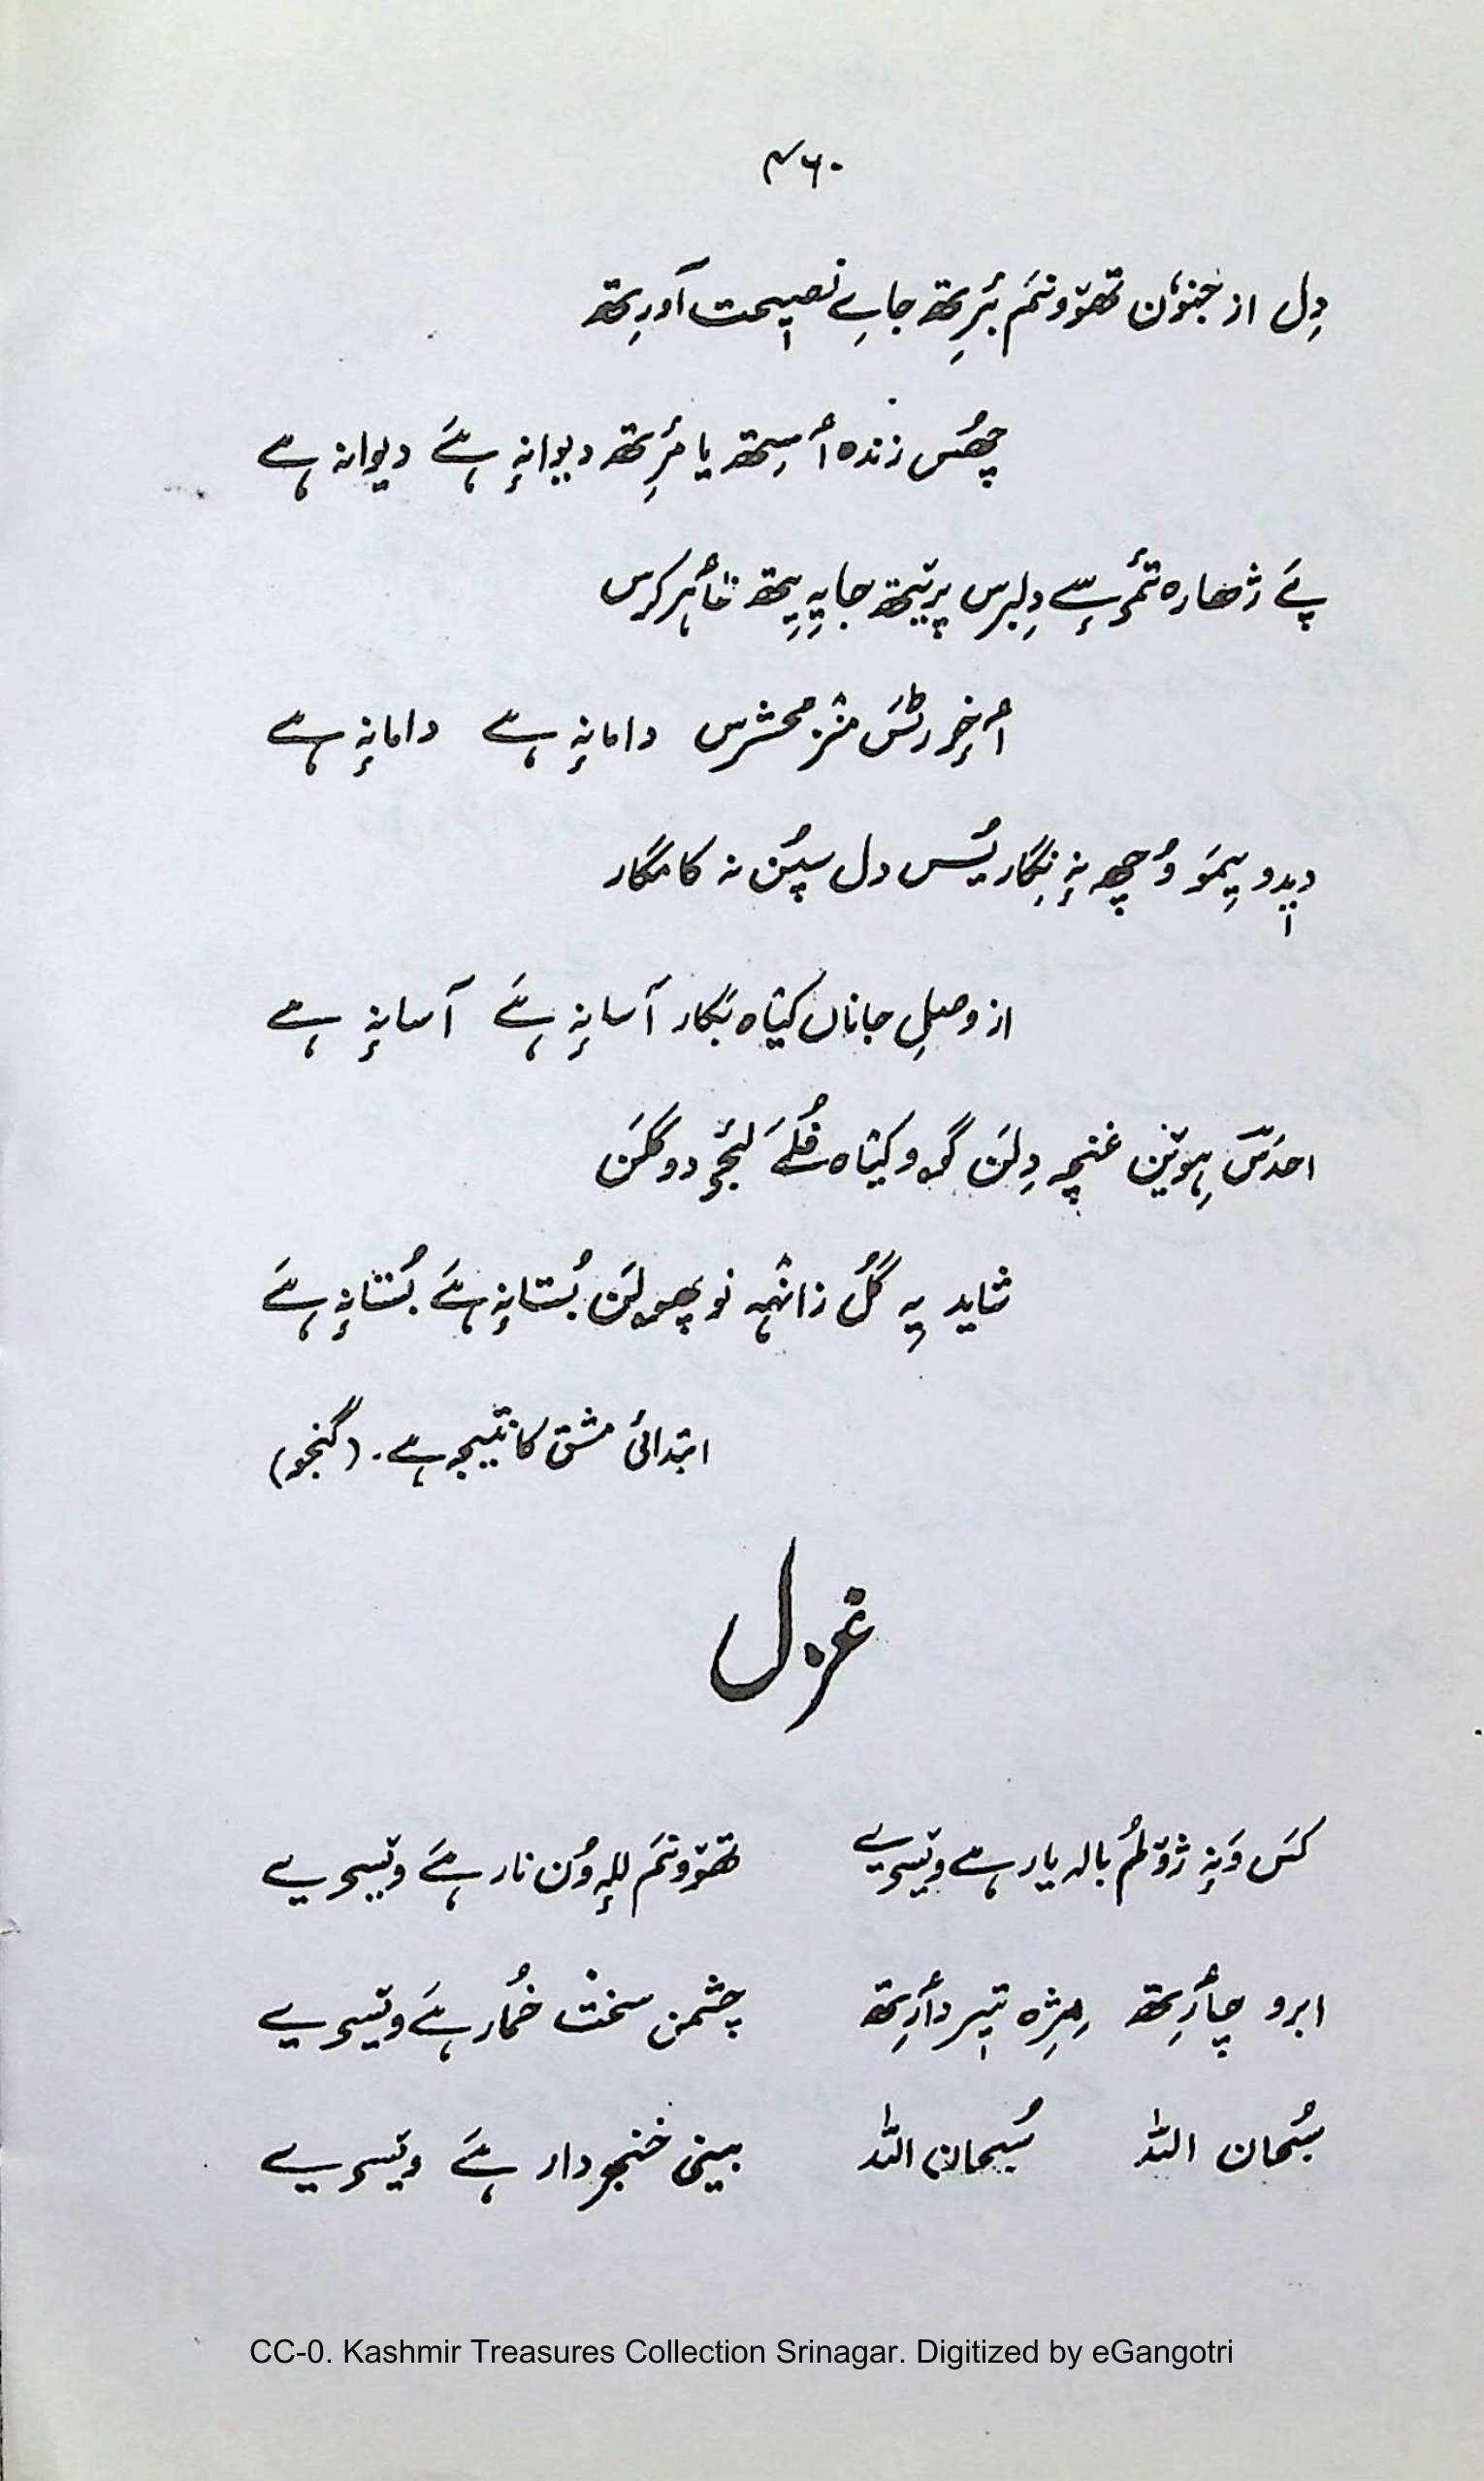 ۴۶۰
دِل از جنوٗن تھوٚونَم بٔرِتھ جایے نصیٖحت آورِتھ
چھُس زندہ أسِتھ یا مٔرِتھ دیوانہٕ ہے دیوانہ ہے
پَے ژھارہ تٔمۍ سٕے دِلبرس پرٮ۪تھ جایہِ یِتھ ظٲہر کرس
أخٕر رٹَس منٛز محشرس دامانہٕ ہے دامانہٕ ہے
دیٖدو یِمَو وُچھ نہٕ نِگار یُس دل سپُن نہ کامگار
از وصلِ جاناں کیٛاہ بکار آسانہٕ ہے آسانہٕ ہے
احدَس ہِوٮ۪ن غنچہ دِلَن گو وکیٛاہ پھُلَے لٔجۍ دوگلَن
شاید یہِ گُل زانٛہہ نو پھولَن بُستانہٕ ہے بُستانہٕ ہے
ابتدائی مشق کا نتیجہ ہے۔ (گنجو)
غزل
کَس وَنہٕ ژوٚلُم بالہ یار ہے ویٚسیے
تھوٚونَم للہٕ وُن نار ہے ویٚسیے
ابرو چأرِتھ مِژہ تیٖر دأرِتھ
چشمن سخٕت خُمار ہے ویٚسیے
سُبحان اللہ سُبحان اللہ
بینی خنجر دار ہے ویٚسیے
CC-0. Kashmir Treasures Collection Srinagar. Digitized by eGangotri